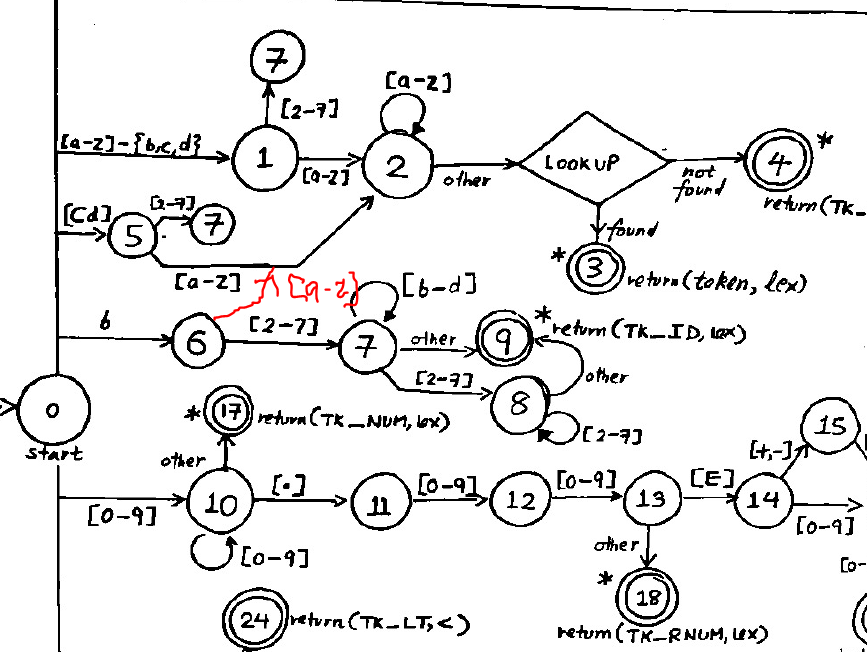 7
[2-7]
[a-z]
[a-z]-{b,c,d}
1
[a-z]
2
other
LOOKUP
not found
4
*
return(TK_
found
*
3
return(token, lex)
[Cd]
5
[2-7]
7
[a-z]
[a-z]
b
6
[2-7]
7
[b-d]
other
9
*
return(TK_ID, lex)
[2-7]
8
other
[2-7]
0
start
*
17
return(TK_NUM, lex)
other
[0-9]
10
[0-9]
[.]
11
[0-9]
12
[0-9]
13
[E]
14
[+,-]
15
[0-9]
[0-
other
*
18
return(TK_RNUM, lex)
24
return(TK_LT, <)